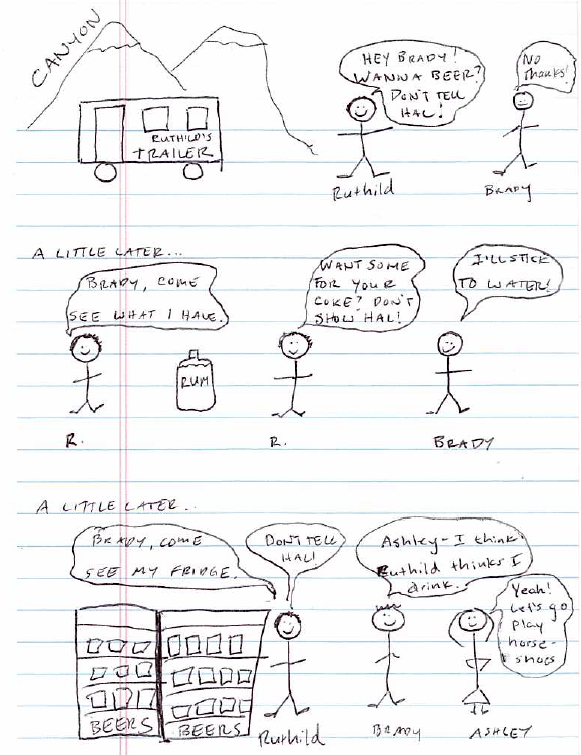 CANYON
RUTHILD'S
TRAILER
HEY BRADY!
WANNA BEER?
DON'T TELL
HAL!
No
Thanks!
Ruthild
BRADY
A LITTLE LATER...
BRADY, COME
SEE WHAT I HAVE.
RUM
WANT SOME
FOR YOUR
COKE? DON'T
SHOW HAL!
I'LL STICK
TO WATER!
R.
R.
BRADY
A LITTLE LATER..
BRADY, COME
SEE MY FRIDGE.
DON'T TELL
HAL!
Ashley - I think
Ruthild thinks I
drink.
Yeah!
Let's go
play
horse-
shoes
BEERS
BEERS
Ruthild
BRADY
ASHLEY